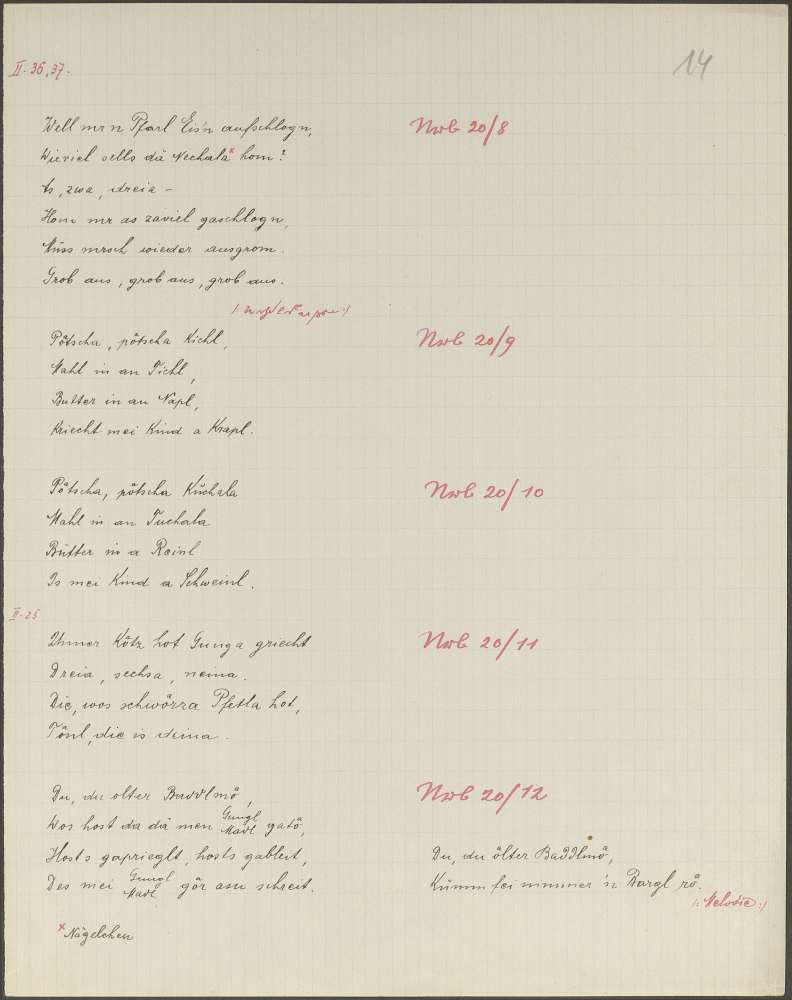 14
II. 36, 37.
Well mr n Pfarl Eis'n aufschlogn,
Nwb 20/8
Wieviel sells dä Nechala* hom?
As, zwa, dreia –
Hom mr as zaviel gaschlogn,
Muss mrsch wieder ausgrom.
Grob aus, grob aus, grob aus.
Pötscha, pötscha Kichl,
Nwb 20/9
Mahl in an Tichl,
Butter in an Napl,
Kriecht mei Kind a Krapl.
Pötscha, pötscha Kuchala
Nwb 20/10
Mahl in an Tuchala
Butter in a Reinl
Is mei Kind a Schweinl.
II-25
Unner Kötz hot Gunga griecht
Nwb 20/11
Dreia, sechsa, neina.
Die, wos schwörza Pfetla hot,
Tönl, die is deina.
Du, du olter Baddlmö,
Nwb 20/12
Wos host da dä men Gungl Madl gatö,
Hosts gaprieglt, hosts gableit,
Du, du ölter Baddlmö,
Des mei Gungl Madl gör asu schreit.
Kumm fei nimmer 'n Bargl rö.
/: Melodie :/
* Nägelchen